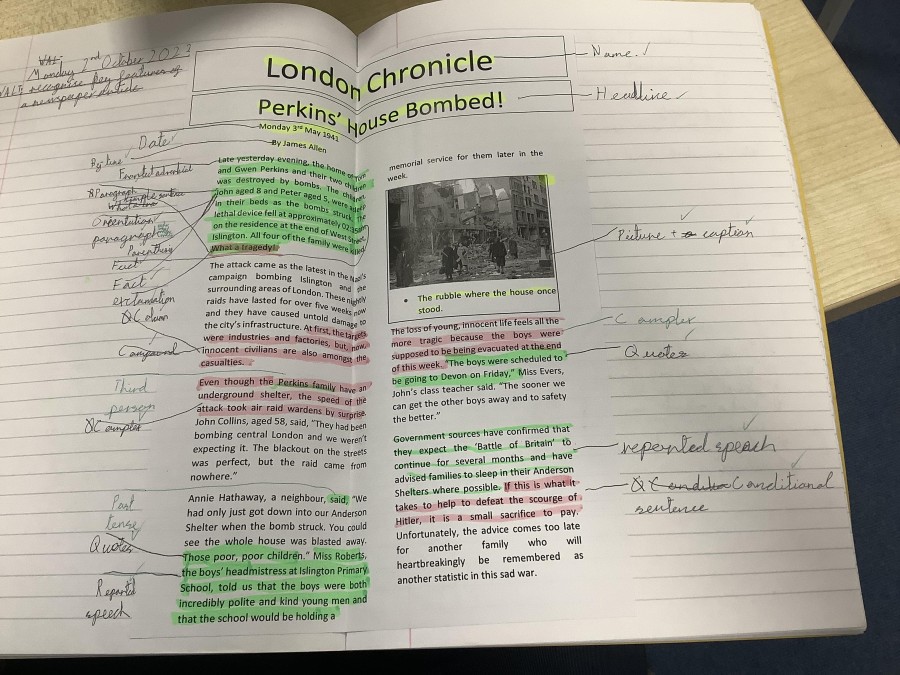 WALT
Monday 2nd October 2023
WALT recognise key features of
a newspaper article
London Chronicle
Perkins' House Bombed!
Monday 3rd May 1941
By James Allen
Late yesterday evening, the home of
and Gwen Perkins and their two children
was destroyed by bombs. The children,
John aged 8 and Peter aged 5, were
in their beds as the bombs struck. The
lethal device fell at approximately
on the residence at the end of West Street,
Islington. All four of the family were killed.
What a tragedy!
The attack came as the latest in the Nazi's
campaign bombing Islington and the
surrounding areas of London. These nightly
raids have lasted for over five weeks now
and they have caused untold damage to
the city's infrastructure. At first, the targets
were industries and factories, but, now,
innocent civilians are also amongst the
casualties.
Even though the Perkins family have an
underground shelter, the speed of the
attack took air raid wardens by surprise.
John Collins, aged 58, said, "They had been
bombing central London and we weren't
expecting it. The blackout on the streets
was perfect, but the raid came from
nowhere."
Annie Hathaway, a neighbour, said, "We
had only just got down into our Anderson
Shelter when the bomb struck. You could
see the whole house was blasted away.
Those poor, poor children." Miss Roberts,
the boys' headmistress at Islington Primary
School, told us that the boys were both
incredibly polite and kind young men and
that the school would be holding a
memorial service for them later in the
week.
• The rubble where the house once
stood.
The loss of young, innocent life feels all the
more tragic because the boys were
supposed to be being evacuated at the end
of this week. "The boys were scheduled to
be going to Devon on Friday," Miss Evers,
John's class teacher said. "The sooner we
can get the other boys away and to safety
the better."
Government sources have confirmed that
they expect the 'Battle of Britain' to
continue for several months and have
advised families to sleep in their Anderson
Shelters where possible. If this is what it
takes to help to defeat the scourge of
Hitler, it is a small sacrifice to pay.
Unfortunately, the advice comes too late
for another family who will
heartbreakingly be remembered as
another statistic in this sad war.
Date
Byline
Fronted adverbial
Paragraph
Orientation
paragraph
Parenthesy
Fact
Fact
exclamation
Column
Compound
Third
person
Complex
Past
tense
Quotes
Reported
speech
Name
Headline
Picture + caption
Complex
Quotes
reported speach
Conditional
sentence